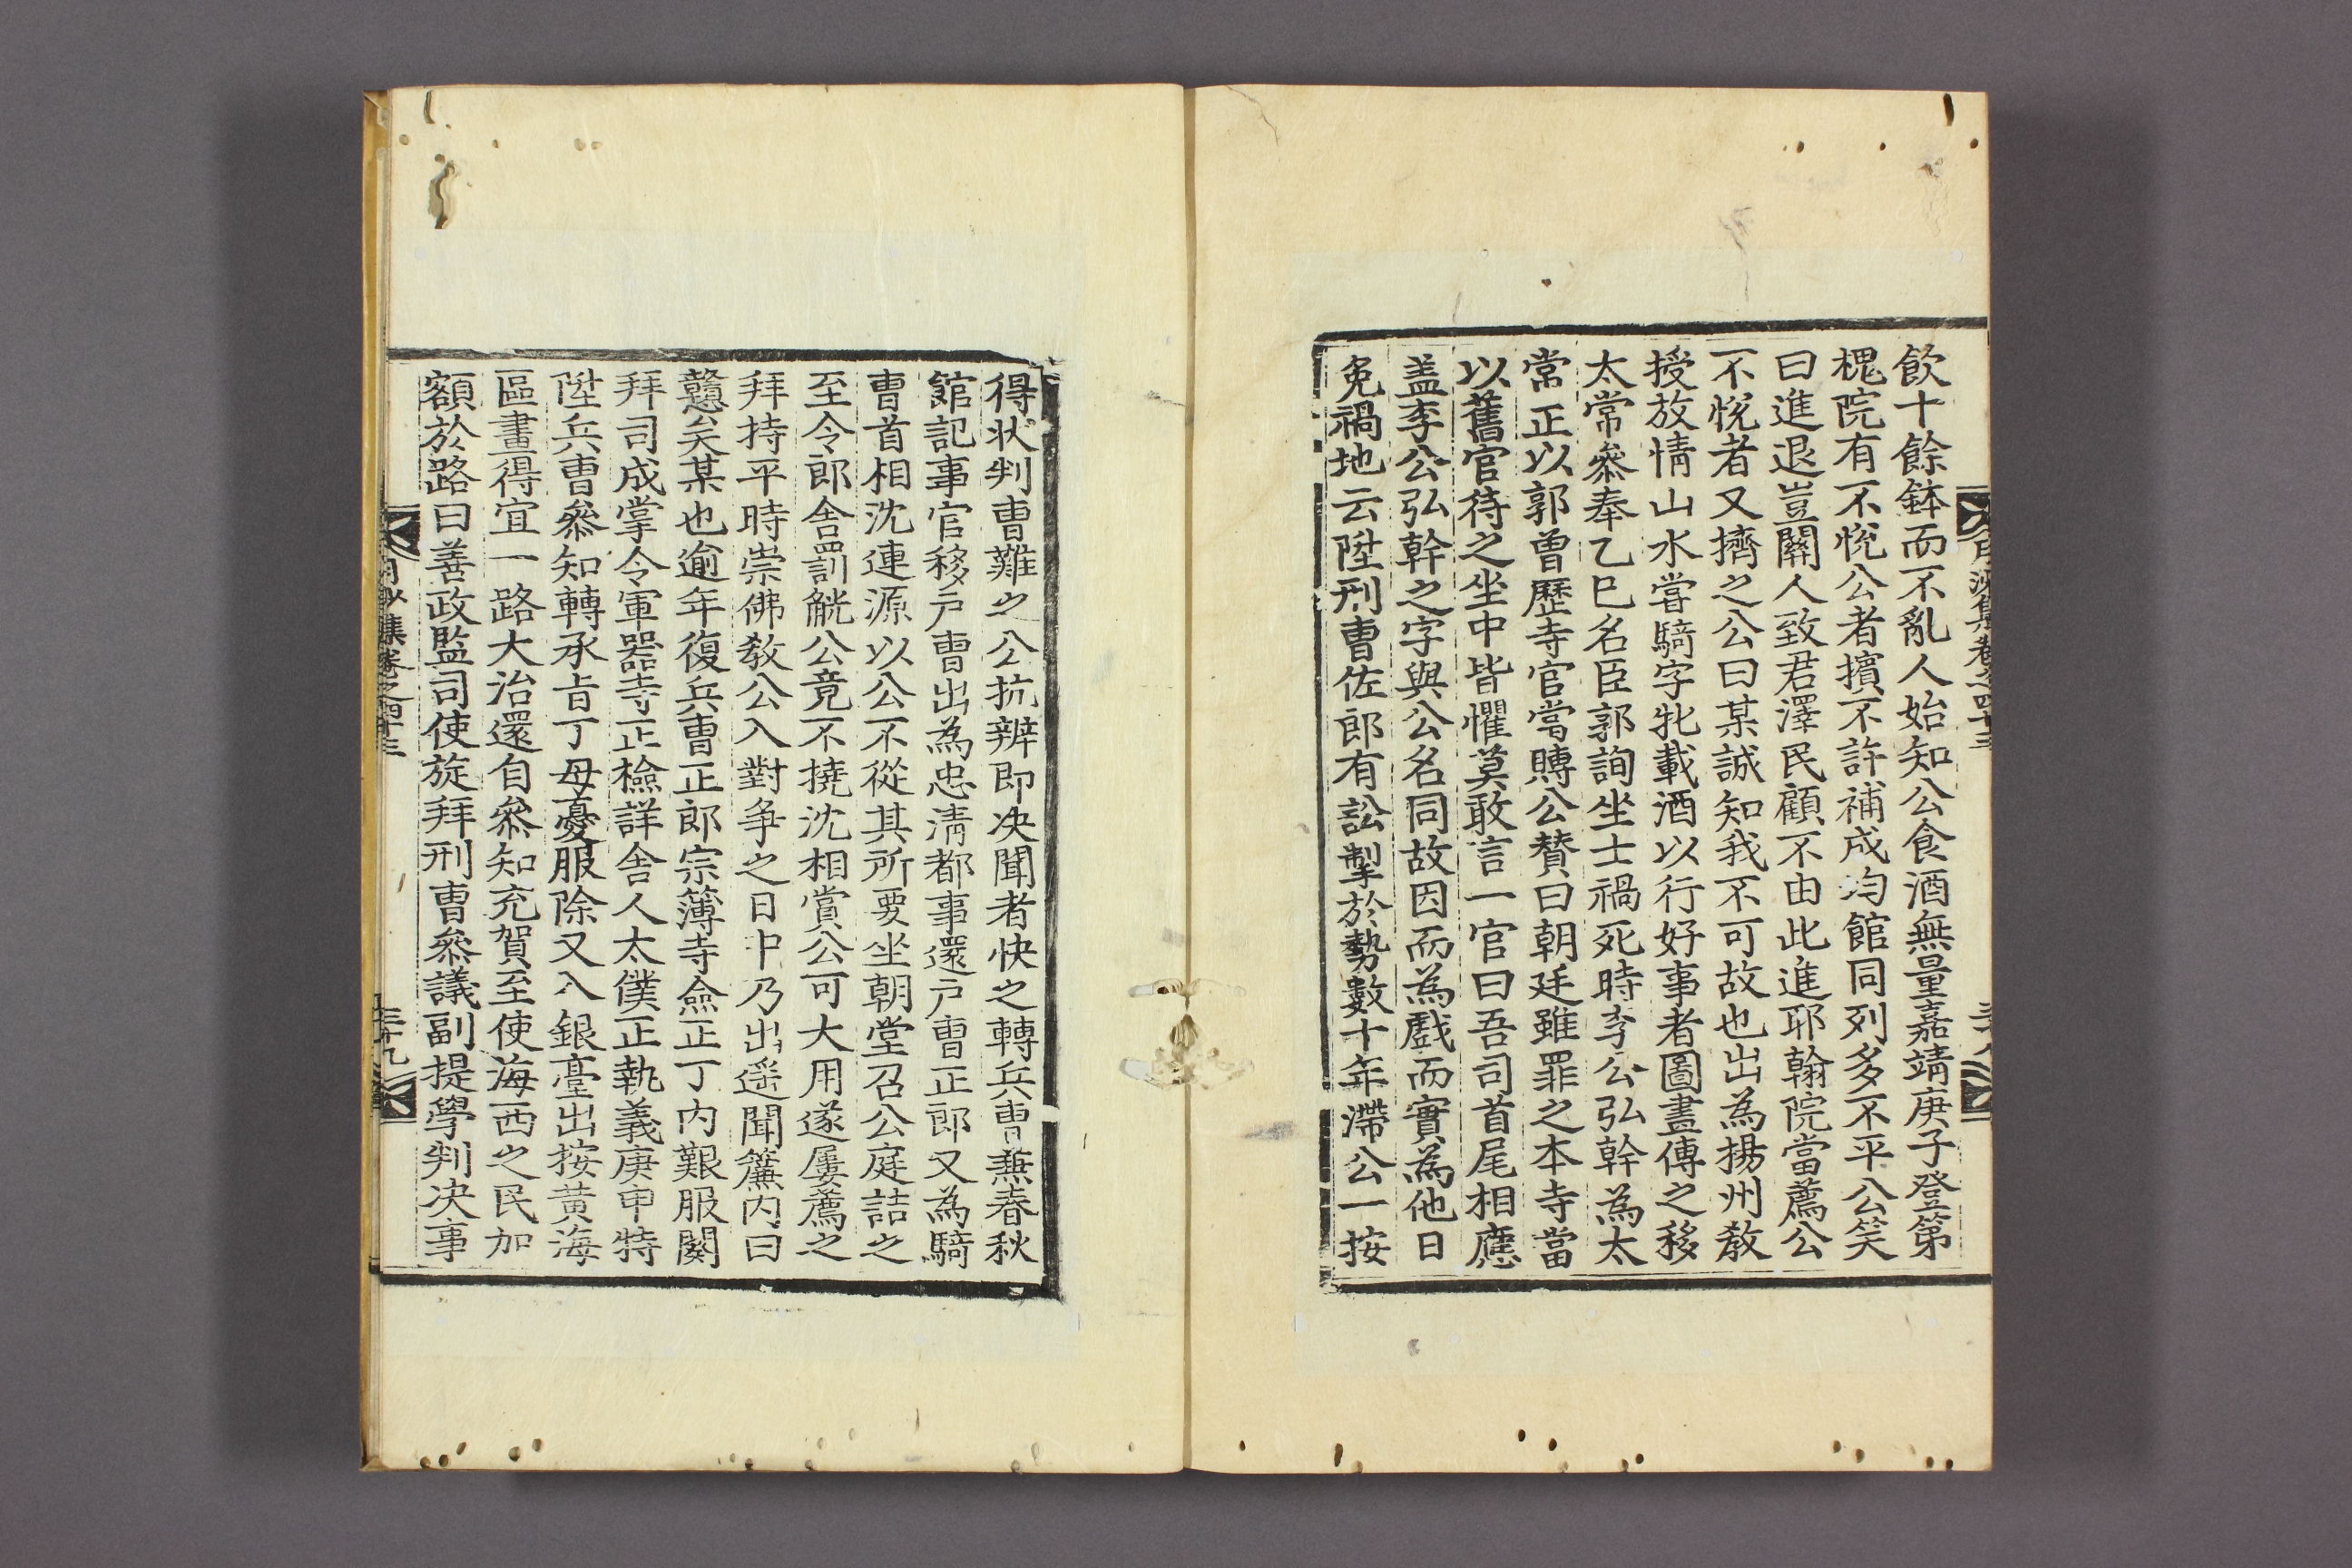 飲十餘鉢而不亂人始知公食酒無量嘉靖庚子登第
槐院有不悅公者擯不許補成均館同列多不平公笑
曰進退豈關人致君澤民顧不由此進耶翰院當薦公
不悅者又擠之公曰某誠知我不可故也出為揚州教
授放情山水嘗騎字牝載酒以行好事者圖畫傳之移
太常叅奉乙巳名臣郭詢坐士禍死時李公弘幹為太
常正以郭曾歷寺官當賻公賛曰朝廷雖罪之本寺當
以舊官待之坐中皆懼莫敢言一官曰吾司首尾相應
盖李公弘幹之字與公名同故因而為戲而實為他日
免禍地云陞刑曹佐郎有訟掣於勢數十年滯公一按
得状判曹難之公抗辨即决聞者快之轉兵曹兼春秋
館記事官移戶曹出為忠淸都事還戶曹正郎又為騎
曹首相沈連源以公不從其所要坐朝堂召公庭詰之
至令郎舍罰觥公竟不撓沈相賞公可大用遂屢薦之
拜持平時崇佛教公入對爭之日中乃出遥聞簾内曰
戇矣某也逾年復兵曹正郎宗簿寺僉正丁内艱服闋
拜司成掌令軍器寺正檢詳舍人太僕正執義庚申特
陞兵曹叅知轉承旨丁母憂服除又入銀臺出按黄海
區畫得宜一路大治還自叅知充賀至使海西之民加
額於路曰善政監司使旋拜刑曹叅議副提學判决事
月沙集卷之四十三
三十九